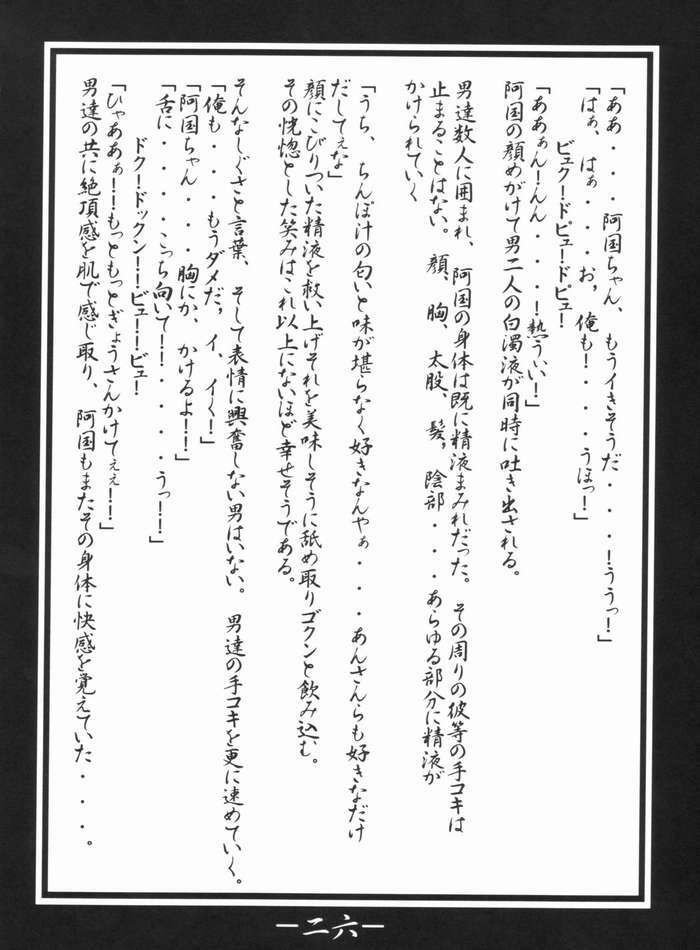 「ああ・・・阿国ちゃん、もうイきそうだ・・・！ううっ！」
「はぁ、はぁ・・・お，俺も！・・・・うほっ！」
ビュク！ドビュ！ドピュ！
「ああぁん！んん・・・！熱ういい！」
阿国の顔めがけて男二人の白濁液が同時に吐き出される。
男達数人に囲まれ、阿国の身体は既に精液まみれだった。その周りの彼等の手コキは
止まることはない。顔，胸，太股、髪，陰部・・・あらゆる部分に精液が
かけられていく
「うち、ちんぽ汁の匂いと味が堪らなく好きなんやぁ・・・あんさんらも好きなだけ
だしてぇな」
顔にこびりついた精液を救い上げそれを美味しそうに舐め取りゴクンと飲み込む。
その恍惚とした笑みはこれ以上にないほど幸せそうである。
そんなしぐさと言葉、そして表情に興奮しない男はいない。男達の手コキを更に速めていく。
「俺も・・・もうダメだ，イ，イく！」
「阿国ちゃん・・・胸にか，かけるよ！！」
「舌に・・・・こっち向いて！！・・・・うっ！！」
ドク！ドックン！！ビュー！ビュ！
「ひゃああぁ！！もっともっとぎょうさんかけてぇぇ！！」
男達の共に絶頂感を肌で感じ取り、阿国もまたその身体に快感を覚えていた・・・。
－二六－